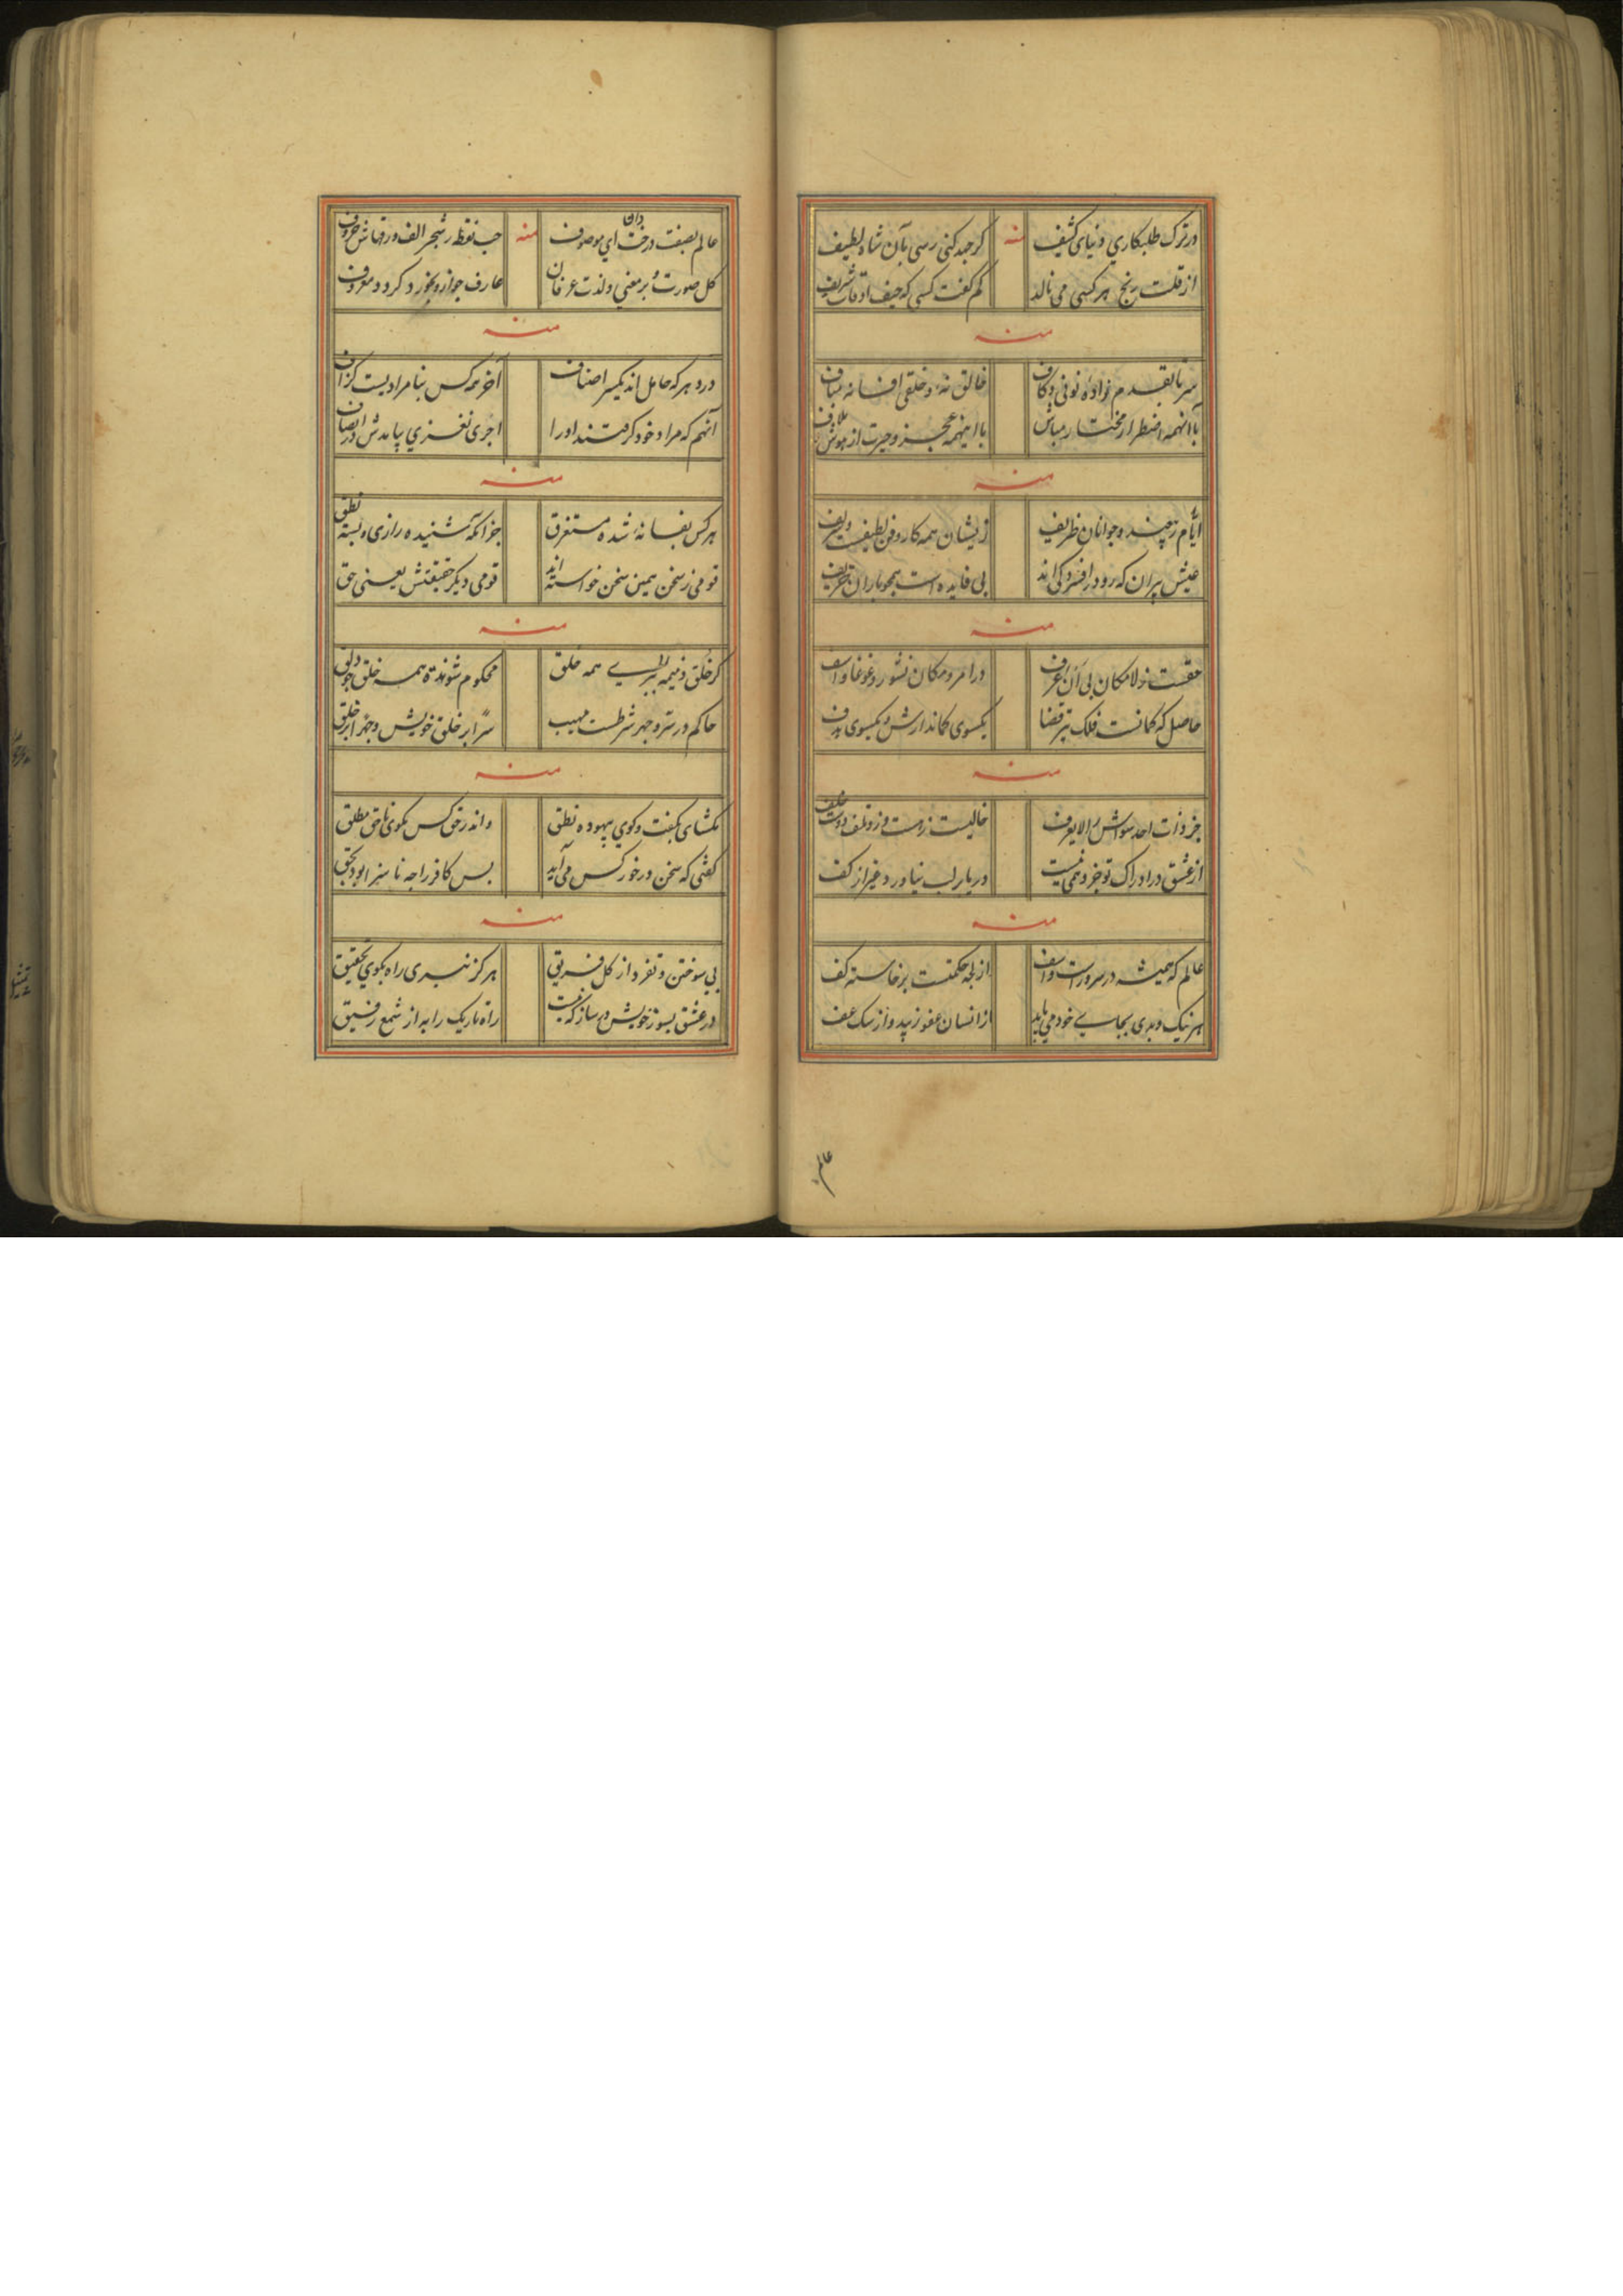 در ترک طلبکاري دنیای کثیف منه کر جهد کنی رسی بآن شاد لطیف
از قلت رنج هر کسی می نالد کم کفت کسی که حیف اوقات شریف
منه
سر تا بقدم نواده نونی و کاف خالق نهٔ و خلقی افسانه مباف
با آنهمه اضطرار مختار مباش با اینهمه عجز و حیرت از هوش ملاف
منه
ایام ز چند و جوانان ظریف زیشان همه کار و فن لطیفست و
عیش پیران که رو در افسردکی اند بی فایده است همچو باران خریف
منه
حقست ز لامکان بی این اعرف در امر و مکان نشور و غوغا و اسف
حاصل که کمانست فلک تیر قضا یکسوی کماندارش و یکسوی هدف
منه
جز ذات احد سواش را لا یعرف خالیست ز دست و زو تلف دوست
از عشق در ادراک تو جز وهمی نیست دریا بر لب نیاورد غیر از کف
منه
عالم که همیشه در سرور است و اسف از لجه حکمتست برخاسته کف
هر نیک و بدی بجاے خود می باید از انسان عفو زیبد و از سک عف
عالم
عالم بصفت درخت دان اي موصوف منه حب نقطه شجر الف ورقهاش حروف
کل صورت و بر معني و لذت عرفان عارف جو ازو بخورد کردد معروف
منه
درد هر که حامل اند یکسر اصناف آخر همه کس بنامرادیست کزاف
آنهم که مراد خود کرفتند او را اجری نغزي بیامدش در انصاف
منه
هر کس بفسانهٔ شده مستغرق جز آنکه شنیده رازی و بسته نطق
قومی ز سخن همین سخن خواسته اند قومی دیکر حقیقتش یعنی حق
منه
کر خلق ذمیمه ببراے همه خلق محکوم شوندت همه خلق
حاکم در سر و جهر شرطست مهیب سراً بر خلق خویش و جهراً بر خلق
منه
مکشای بکفت و کوي بیهوده نطق واندر حق کس مکوی ناحق مطلق
کفتی که سخن در خور کس می آید بس کافر را جه ناسزا بود بحق
منه
بی سوختن و تفرد از کل فریق هرکز نبری راه بکوي تحقیق
در عشق بسوز خویش در ساز که نیست راه تاریک را به از شمع رفیق